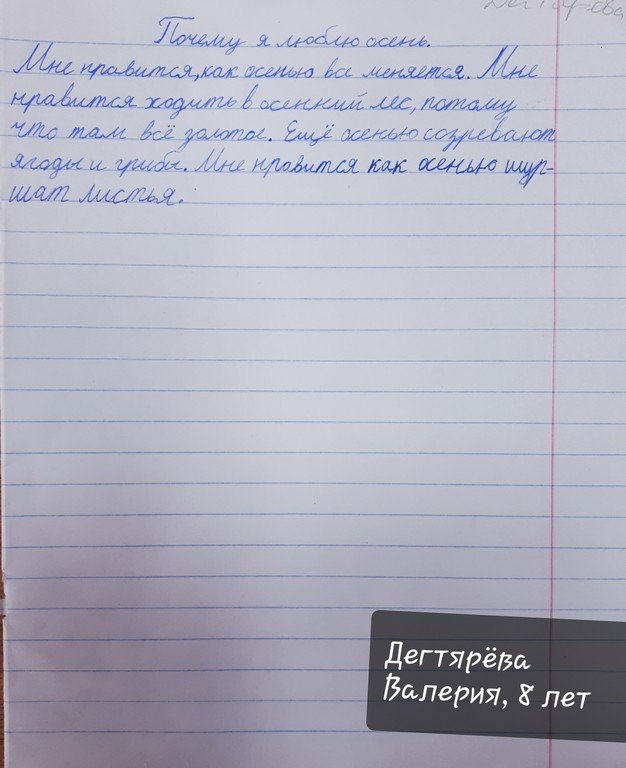 Дегтярева
Почему я люблю осень.
Мне нравится, как осенью все меняется. Мне
нравится ходить в осенний лес, потому
что там всё золотое. Ещё осенью созревают
ягоды и грибы. Мне нравится как осенью шур-
шат листья.
Дегтярёва
Валерия, 8 лет